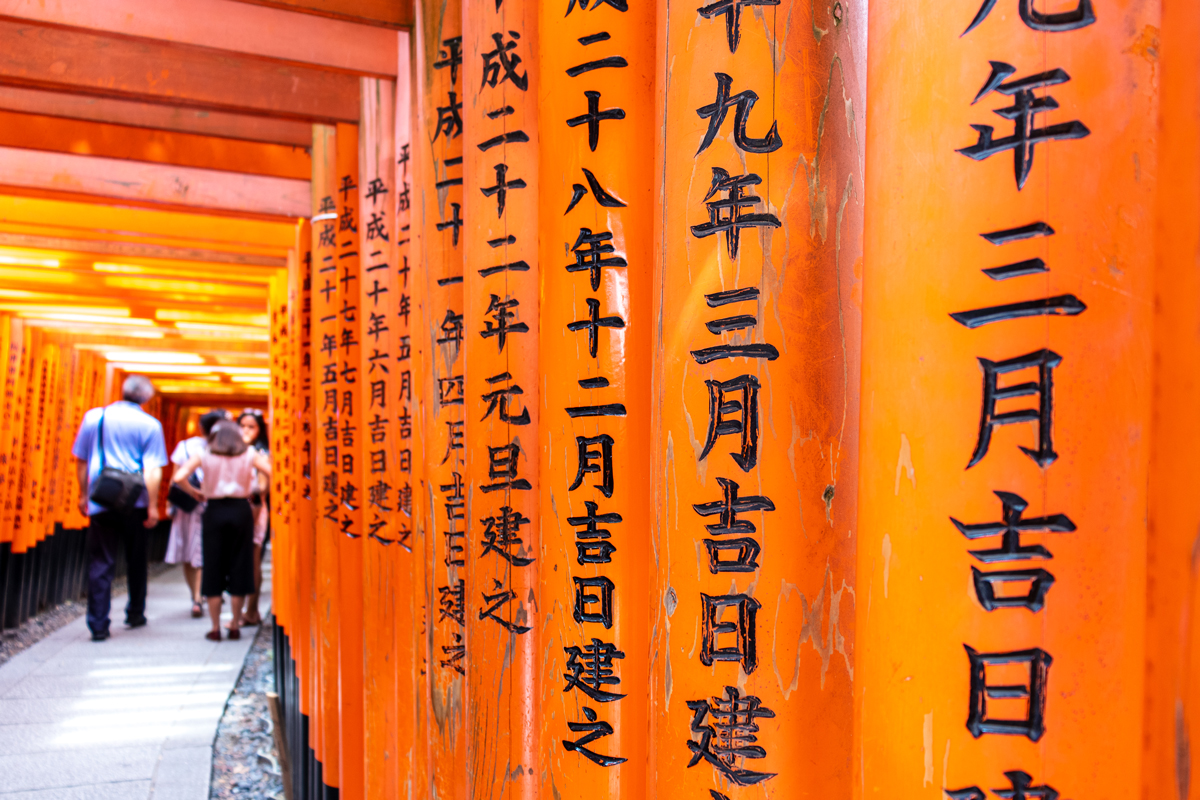 年三月吉日建
十九年三月吉日建
成二十八年十二月吉日建之
成二十二年元旦建之
平成二十一年四月吉日建之
平成二十年五月吉日建之
平成二十年六月吉日建之
平成二十七年七月吉日建之
平成二十一年五月吉日建之